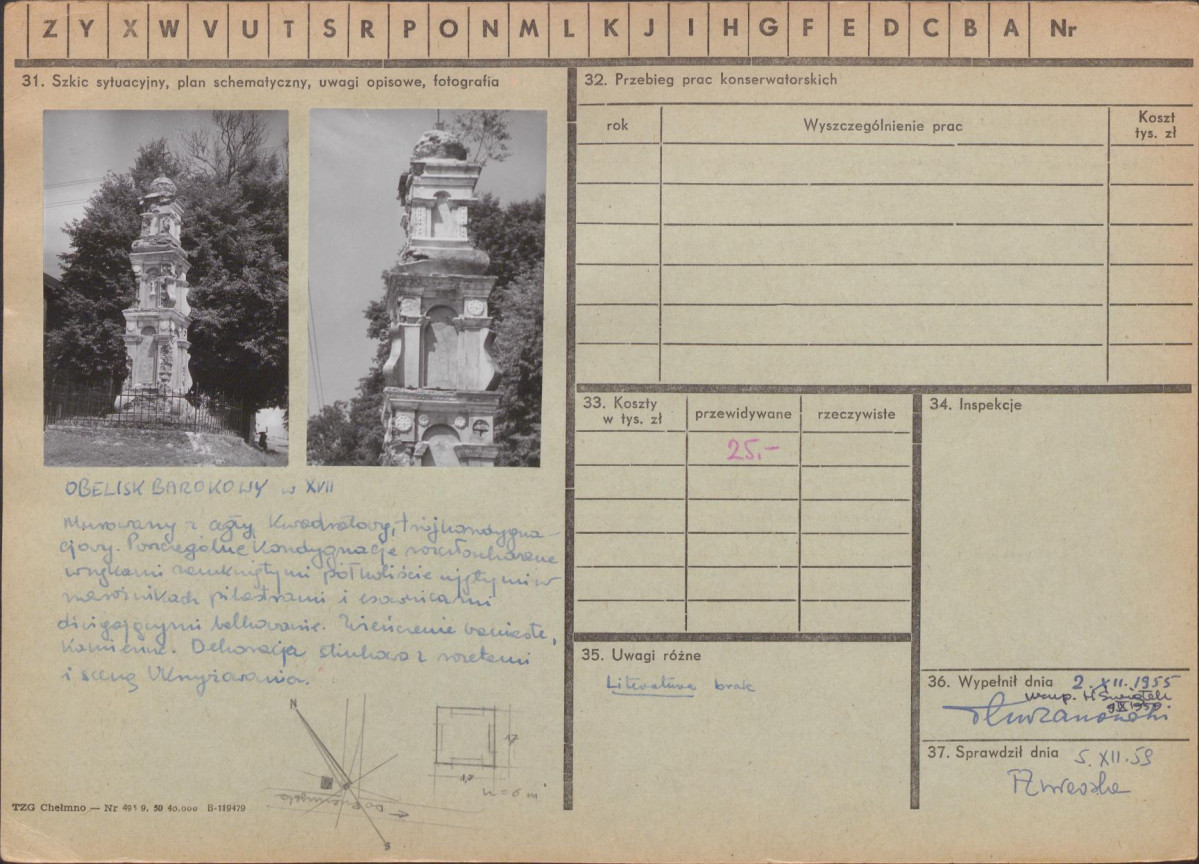 Z Y X W V U T S R P O N M L K J I H G F E D C B A Nr
31. Szkic sytuacyjny, plan schematyczny, uwagi opisowe, fotografia
OBELISK BAROKOWY w XVII
Murowany z cegły, Kwadratowy, trójkondygna-
cjowy. Poszczególne Kondygnacje rozczłonkowane
wnękami zamkniętymi półkoliście ujętymi w
narożnikach pilastrami i esownicami
dźwigającymi belkowanie. Zwieńczenie baniaste,
Kamienne. Dekoracja stiukowa z rozetami
i sceną Ukrzyżowania.
N
S
1,7
1,7
h=6 m
TZG Chełmno — Nr 491 9. 50 40.000 B-119479
32. Przebieg prac konserwatorskich
rok
Wyszczególnienie prac
Koszt
tys. zł
33. Koszty
w tys. zł
przewidywane
rzeczywiste
25.-
34. Inspekcje
35. Uwagi różne
Literatura brak
36. Wypełnił dnia 2.XII.1955
37. Sprawdził dnia 5.XII.59